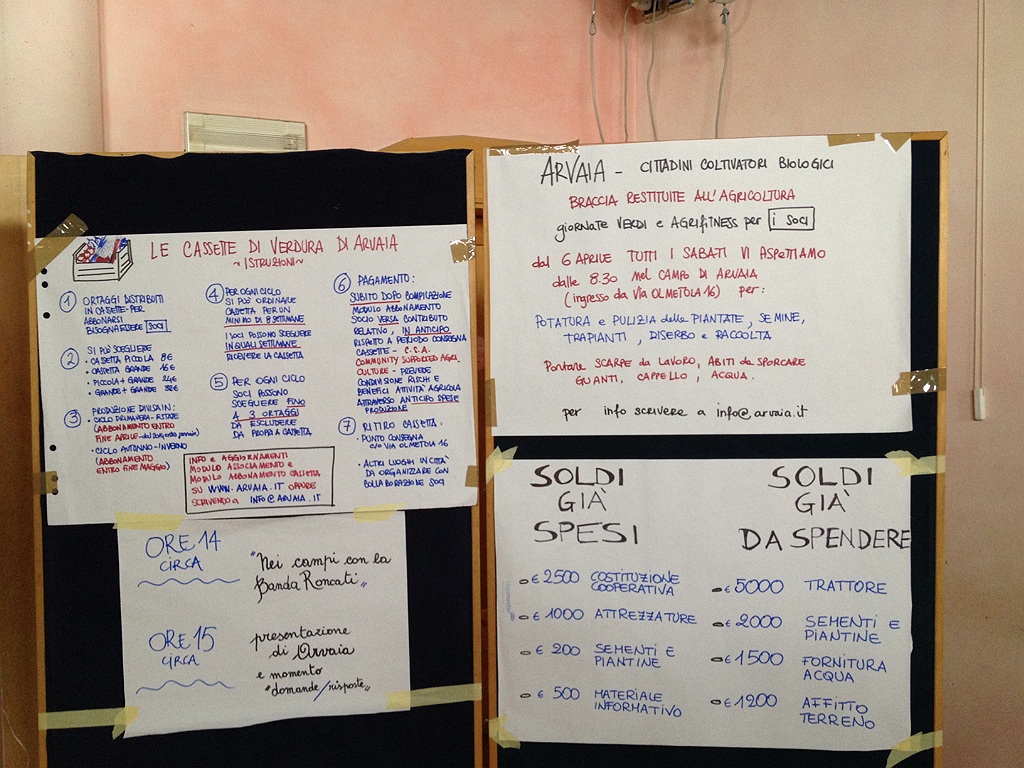 LE CASSETTE DI VERDURA DI ARVAIA
~ ISTRUZIONI ~
1 ORTAGGI DISTRIBUITI
IN CASSETTE - PER
ABBONARSI
BISOGNA ESSERE SOCI
2 SI PUÒ SCEGLIERE
• CASSETTA PICCOLA 8€
• CASSETTA GRANDE 16€
• PICCOLA + GRANDE 24€
• GRANDE + GRANDE 32€
3 PRODUZIONE DIVISA IN:
• CICLO PRIMAVERA - ESTATE
(ABBONAMENTO ENTRO
FINE APRILE
• CICLO AUTUNNO - INVERNO
(ABBONAMENTO
ENTRO FINE MAGGIO)
4 PER OGNI CICLO
SI PUO' ORDINARE
CASSETTA PER UN
MINIMO DI 8 SETTIMANE
I SOCI POSSONO SCEGLIERE
IN QUALI SETTIMANE
RICEVERE LA CASSETTA
5 PER OGNI CICLO
SOCI POSSONO
SCEGLIERE FINO
A 3 ORTAGGI
DA ESCLUDERE
DA PROPRIA CASSETTA
6 PAGAMENTO:
SUBITO DOPO COMPILAZIONE
MODULO ABBONAMENTO
SOCIO VERSA CONTRIBUTO
RELATIVO, IN ANTICIPO
RISPETTO A PERIODO CONSEGNA
CASSETTE - C.S.A.
COMMUNITY SUPPORTED AGRI
CULTURE - PREVEDE
CONDIVISIONE RISCHI E
BENEFICI ATTIVITÀ AGRICOLA
ATTRAVERSO ANTICIPO SPESE
PRODUZIONE
7 RITIRO CASSETTA:
• PUNTO CONSEGNA
C/O VIA OLMETOLA 16
• ALTRI LUOGHI IN CITTÀ
DA ORGANIZZARE CON
COLLABORAZIONE SOCI
INFO E AGGIORNAMENTI
MODULO ASSOCIAMENTO E
MODULO ABBONAMENTO CASSETTA
SU WWW.ARVAIA.IT OPPURE
SCRIVENDO A INFO@ARVAIA.IT
ORE 14
CIRCA
"Nei campi con la
Banda Roncati"
ORE 15
CIRCA
presentazione
di Arvaia
e momento
"domande/risposte"
ARVAIA - CITTADINI COLTIVATORI BIOLOGICI
BRACCIA RESTITUITE ALL'AGRICOLTURA
giornate VERDI e AGRIFITNESS per i SOCI
dal 6 APRILE TUTTI I SABATI VI ASPETTIAMO
dalle 8.30 nel CAMPO DI ARVAIA
(ingresso da VIA OLMETOLA 16) per:
POTATURA e PULIZIA delle PIANTATE, SEMINE,
TRAPIANTI, DISERBO e RACCOLTA
Portare SCARPE da LAVORO, ABITI da SPORCARE
GUANTI, CAPPELLO, ACQUA.
per info scrivere a info@arvaia.it
SOLDI
GIÀ
SPESI
- € 2500 COSTITUZIONE
COOPERATIVA
- € 1000 ATTREZZATURE
- € 200 SEMENTI E
PIANTINE
- € 500 MATERIALE
INFORMATIVO
SOLDI
GIÀ
DA SPENDERE
- € 5000 TRATTORE
- € 2000 SEMENTI E
PIANTINE
- € 1500 FORNITURA
ACQUA
- € 1200 AFFITTO
TERRENO